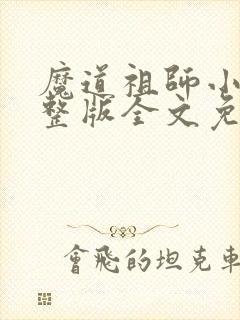 魔道祖師小
整版全文免
會飛的坦克車